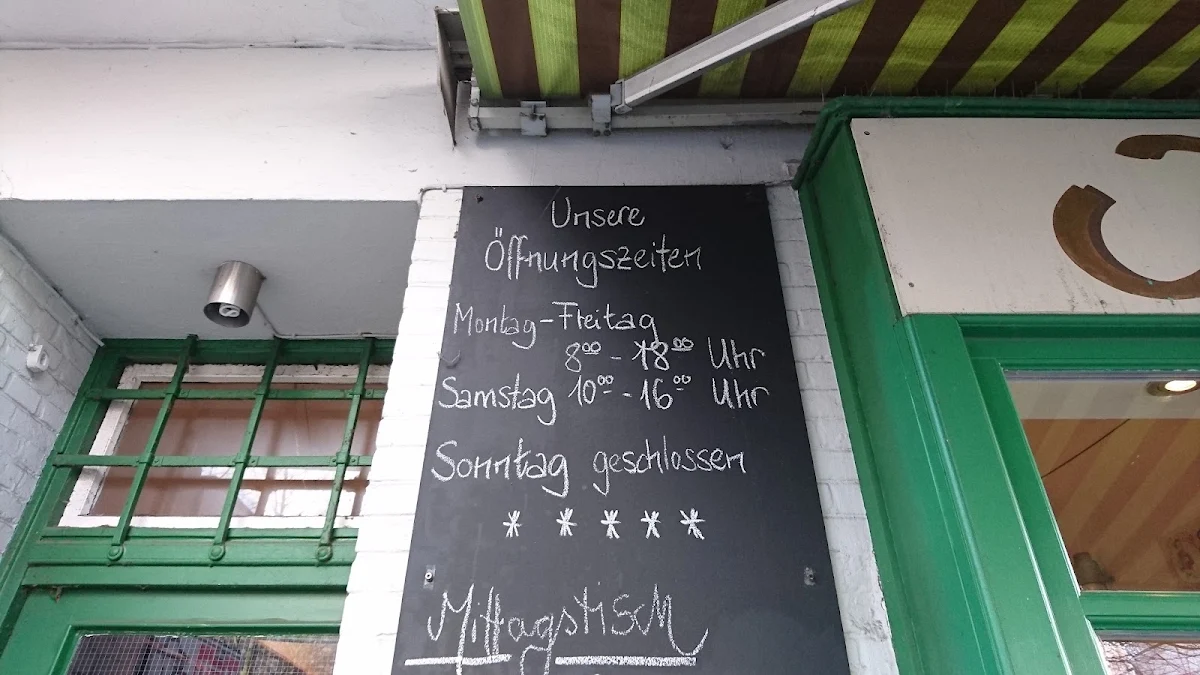 Unsere
Öffnungszeiten
Montag-Freitag
8⁰⁰ - 18⁰⁰ Uhr
Samstag 10⁰⁰ - 16⁰⁰ Uhr
Sonntag geschlossen
* * * * *
Mittagstisch